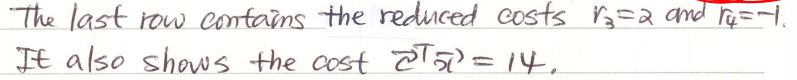 The last row contains the reduced costs r₃=2 and r₄=-1.
It also shows the cost c̄ᵀx̄ = 14.